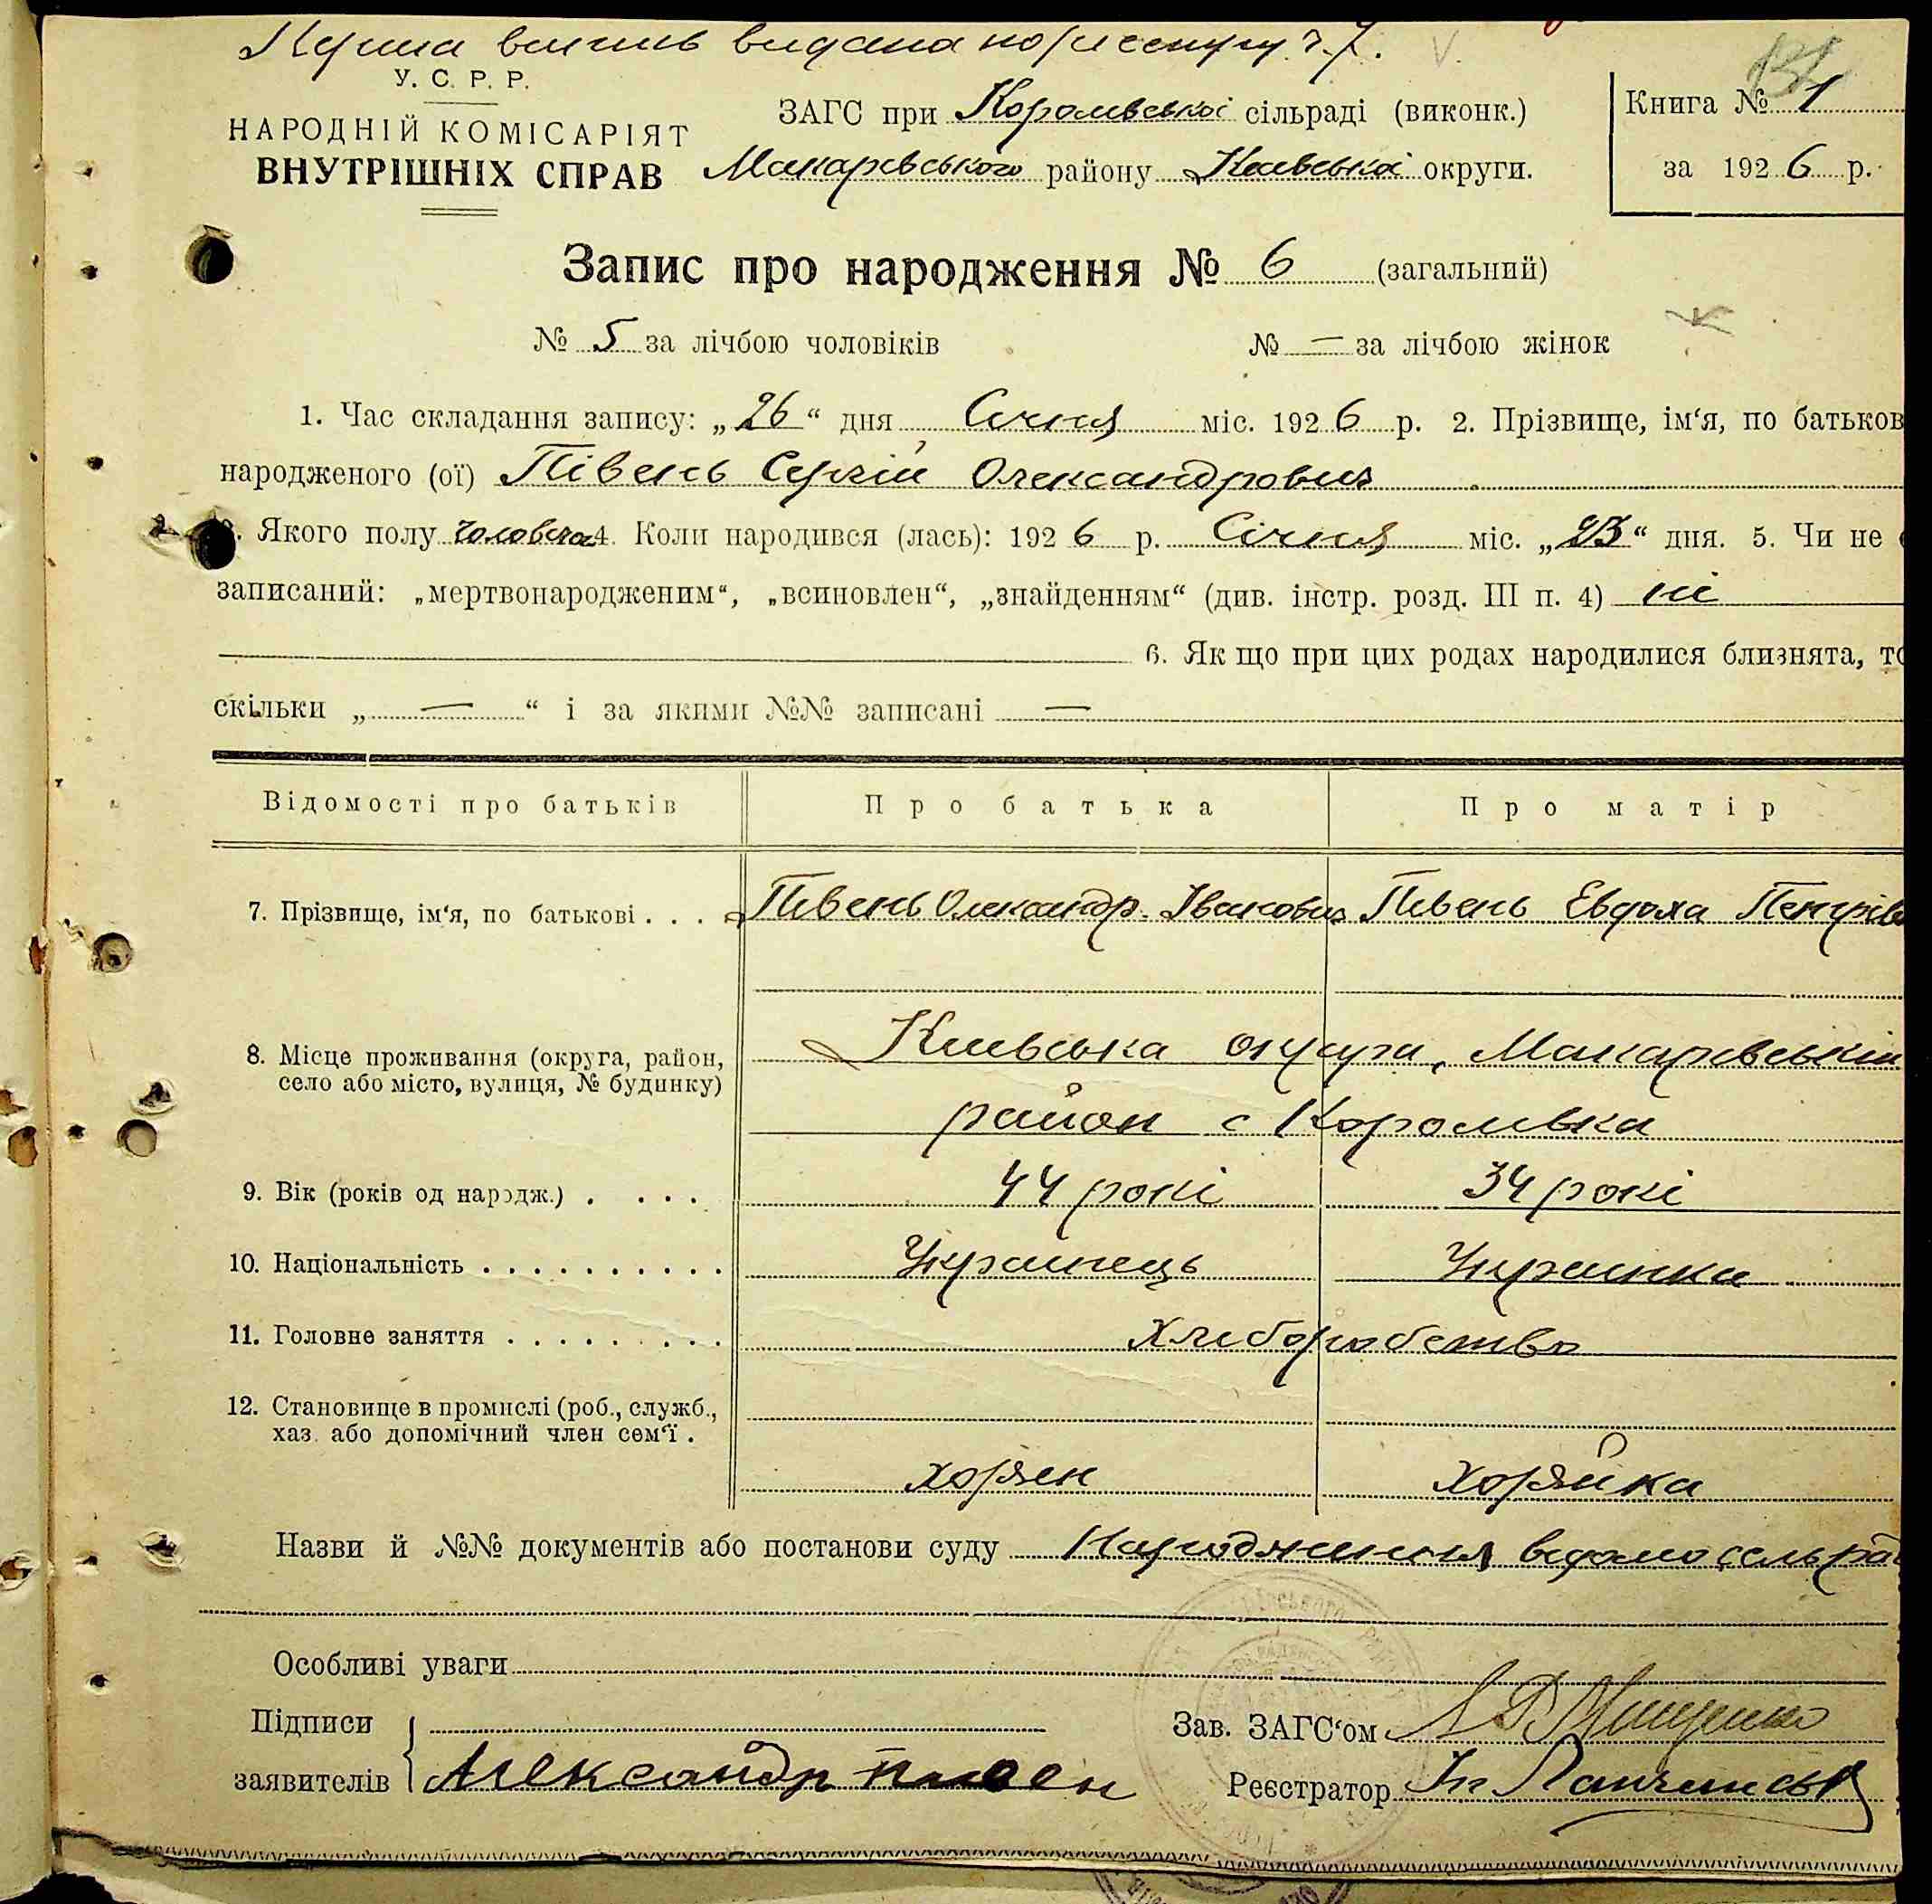 Перша випись видана по реєстру ч. 7.
У. С. Р. Р.
НАРОДНІЙ КОМІСАРІЯТ
ВНУТРІШНІХ СПРАВ
ЗАГС при Королівської сільраді (виконк.)
Макарівського району Київської округи.
Книга № 1
за 1926 р.
Запис про народження № 6 (загальний)
№ 5 за лічбою чоловіків № — за лічбою жінок
1. Час складання запису: „26“ дня Січня міс. 1926 р. 2. Прізвище, ім‘я, по батьков
народженого (ої) Півень Сергій Олександрович
3. Якого полу чоловіча 4. Коли народився (лась): 1926 р. Січня міс. „23“ дня. 5. Чи не є
записаний: „мертвонародженим“, „всиновлен“, „знайденням“ (див. інстр. розд. III п. 4) ні
6. Як що при цих родах народилися близнята, то
скільки „ — “ і за якими №№ записані —
Відомості про батьків Про батька Про матір
7. Прізвище, ім‘я, по батькові . . . Півень Олександр Іванович Півень Евдоха Петрів
8. Місце проживання (округа, район, село або місто, вулиця, № будинку)
Киівська округа, Макарівський
район с Королівка
9. Вік (років од народж.) . . . . 44 рокі 34 рокі
10. Національність . . . . . . . . . . Украінець Украінка
11. Головне заняття . . . . . . . . . Хліборобство
12. Становище в промислі (роб., служб.,
хаз. або допомічний член сем‘ї .
хозяен хозяйка
Назви й №№ документів або постанови суду Народження відомо сельрад
Особливі уваги
Підписи
заявителів Александр Пивен
Зав. ЗАГС‘ом
Реєстратор